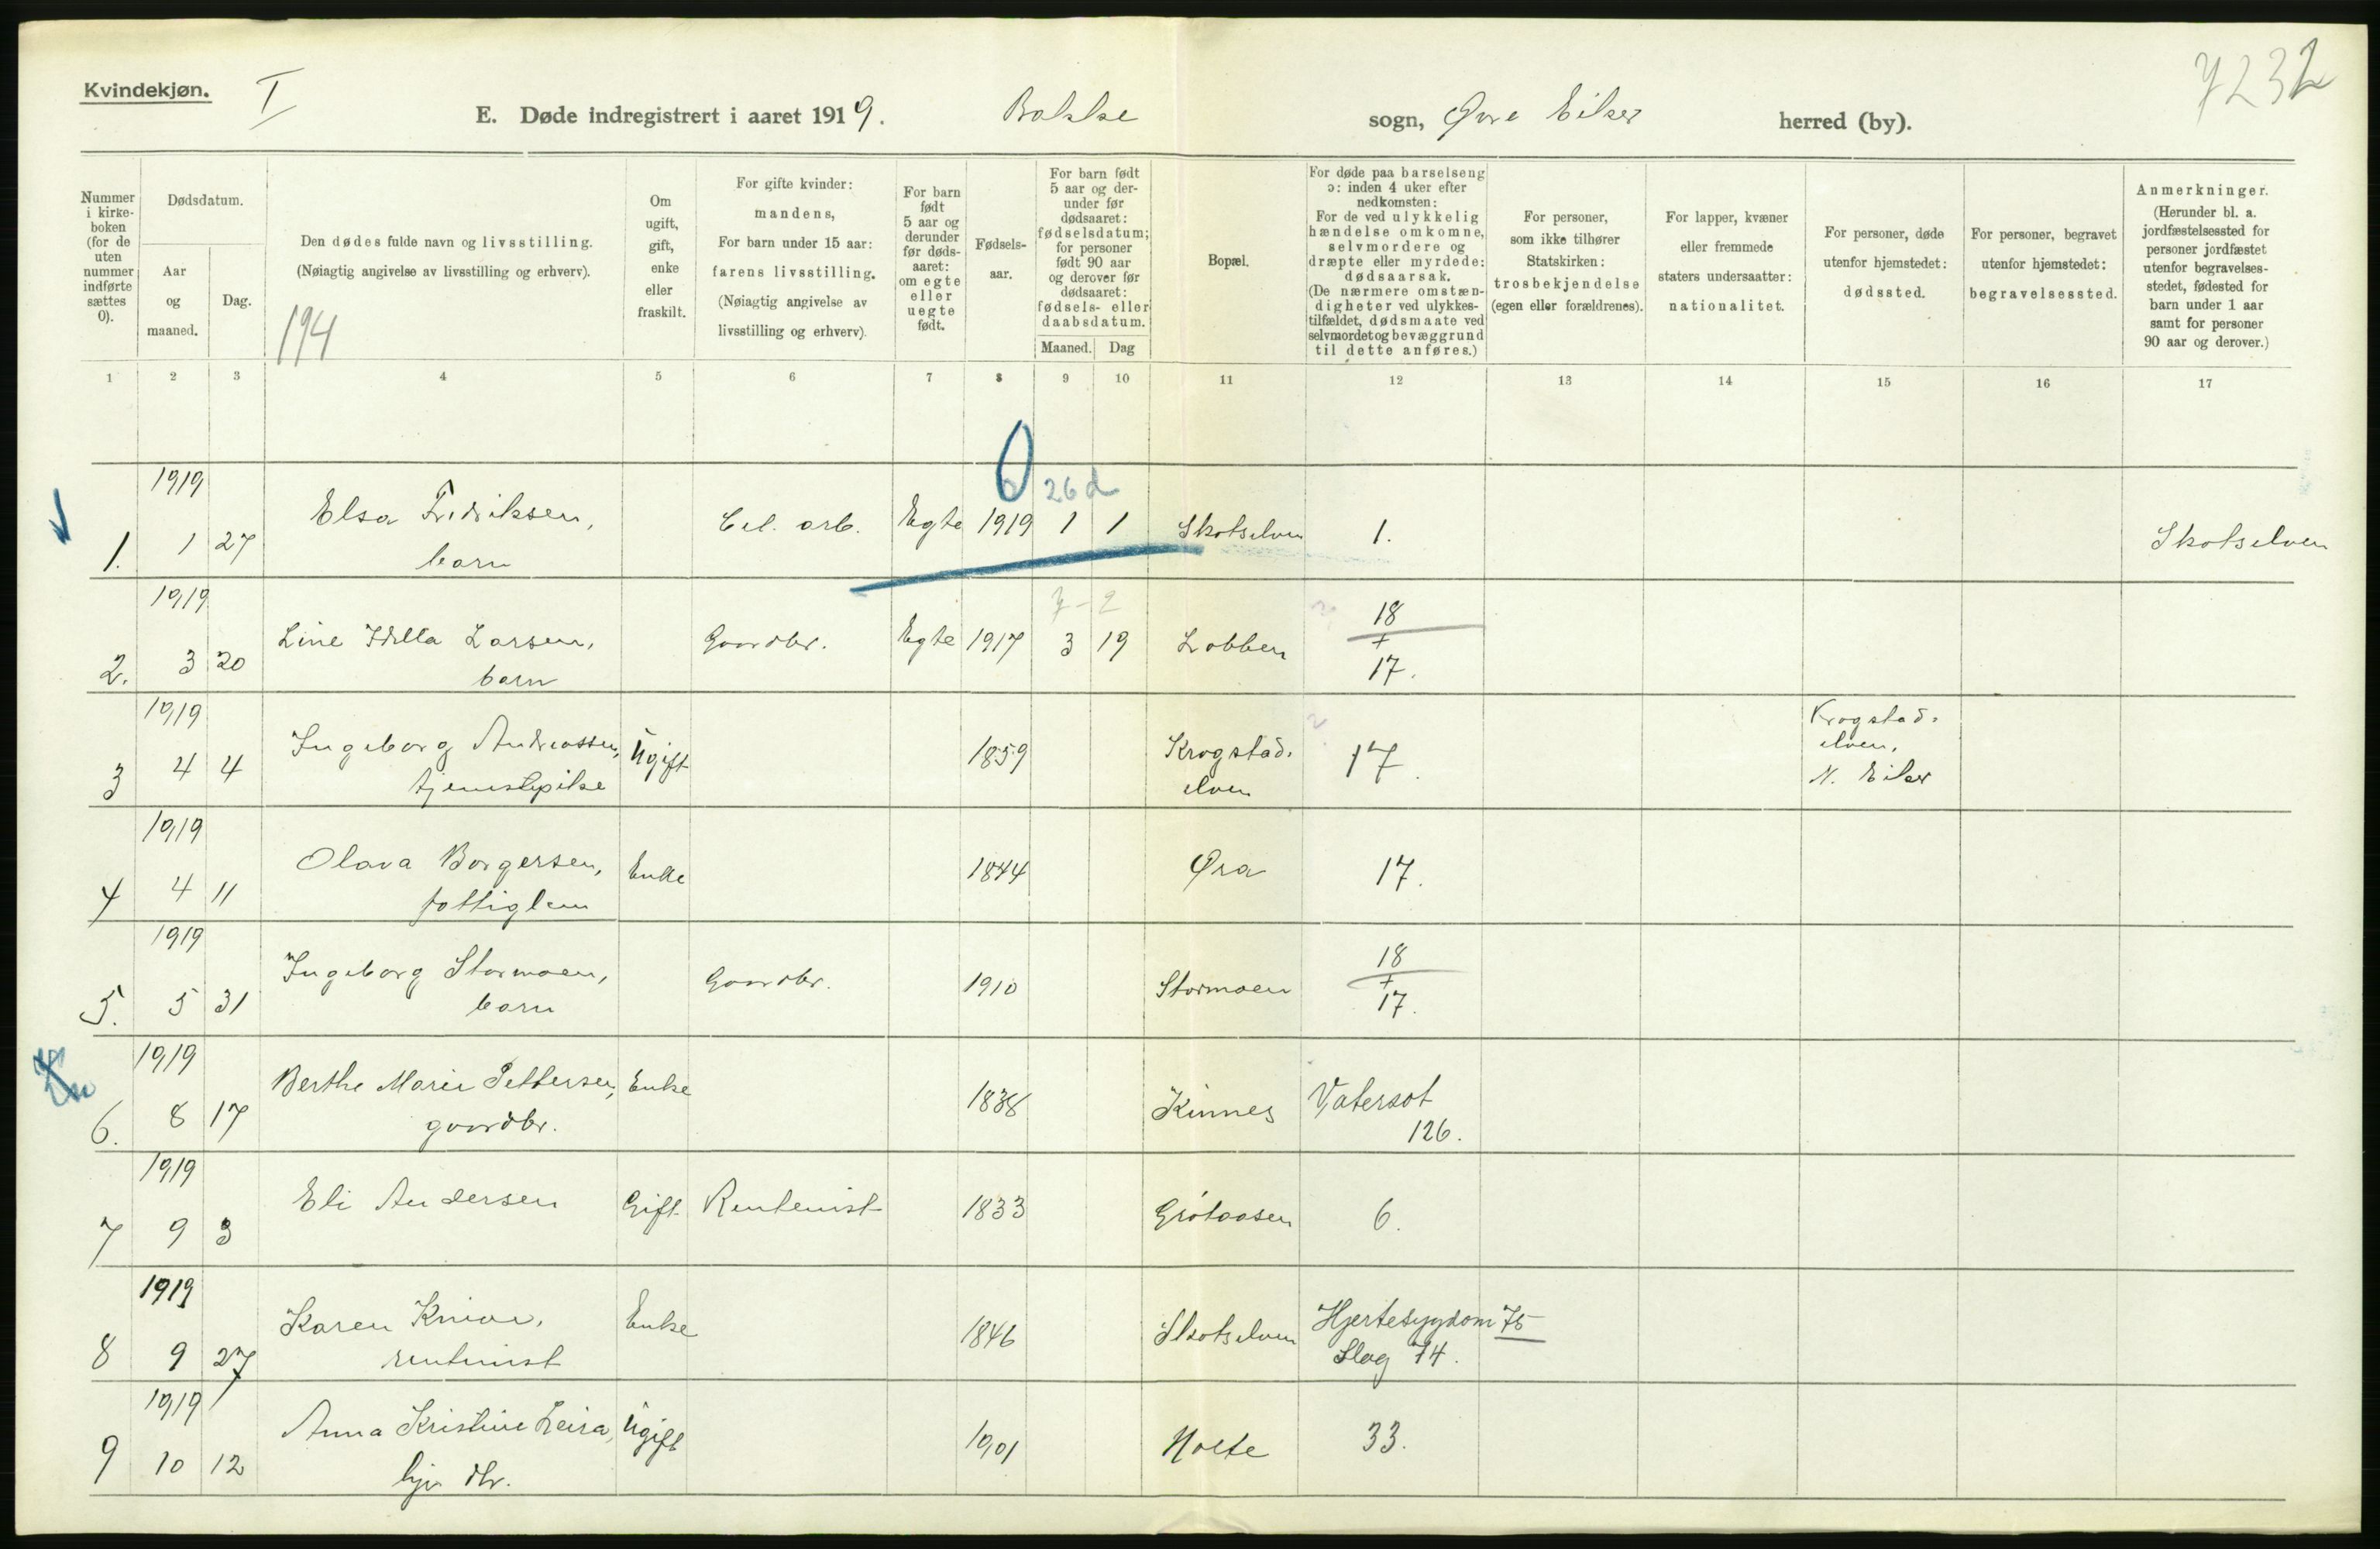 Kvindekjøn.
I
7232
E. Døde indregistrert i aaret 1919. Bakke sogn, Øvre Eiker herred (by).
Nummer i kirke-boken (for de uten nummer indførte sættes 0).
Dødsdatum.
Aar og maaned.
Dag.
Den dødes fulde navn og livsstilling.
(Nøiagtig angivelse av livsstilling og erhverv).
194
Om ugift, gift, enke eller fraskilt.
For gifte kvinder: mandens,
For barn under 15 aar: farens livsstilling.
(Nøiagtig angivelse av livsstilling og erhverv).
For barn født 5 aar og derunder før døds-aaret: om egte eller uegte født.
Fødsels-aar.
For barn født 5 aar og der-under før dødsaaret: fødselsdatum; for personer født 90 aar og derover før dødsaaret: fødsels- eller daabsdatum.
Maaned. Dag
Bopæl.
For døde paa barselseng ɔ: inden 4 uker efter nedkomsten:
For de ved ulykkelig hændelse omkomne, selvmordere og dræpte eller myrdede: dødsaarsak.
(De nærmere omstæn-digheter ved ulykkes-tilfældet, dødsmaate ved selvmordet og bevæggrund til dette anføres.)
For personer, som ikke tilhører Statskirken: trosbekjendelse (egen eller forældrenes).
For lapper, kvæner eller fremmede staters undersaatter: nationalitet.
For personer, døde utenfor hjemstedet: dødssted.
For personer, begravet utenfor hjemstedet: begravelsessted.
Anmerkninger.
(Herunder bl. a. jordfæstelsessted for personer jordfæstet utenfor begravelses-stedet, fødested for barn under 1 aar samt for personer 90 aar og derover.)
1 2 3 4 5 6 7 8 9 10 11 12 13 14 15 16 17
1919 0 26 d
1. 1 27 Elsa Fredriksen, barn Cel. arb. Egte 1919 1 1 Skotselven 1. Skotselven
1919 7-2
2. 3 20 Line Idella Larsen, barn Gaardbr. Egte 1917 3 19 Lobben 18 + 17.
1919
3 4 4 Ingeborg Andreassen, tjenestepike Ugift 1859 Krogstadelven 17. Krogstadelven, N. Eiker
1919
4 4 11 Olava Borgersen, fattiglem Enke 1844 Øra 17.
1919
5. 5 31 Ingeborg Stormoen, barn Gaardbr. 1910 Stormoen 18 + 17.
1919
6. 8 17 Berthe Marie Pettersen, gaardbr. Enke 1838 Kinnes Vatersot 126.
1919
7 9 3 Eli Andersen Gift Rentenist 1833 Grötaasen 6.
1919
8 9 27 Karen Knive, rentenist Enke 1846 Skotselven Hjertesygdom 75 Slag 74.
1919
9 10 12 Anna Kristine Leira, hjv. dtr. Ugift 1901 Holte 33.